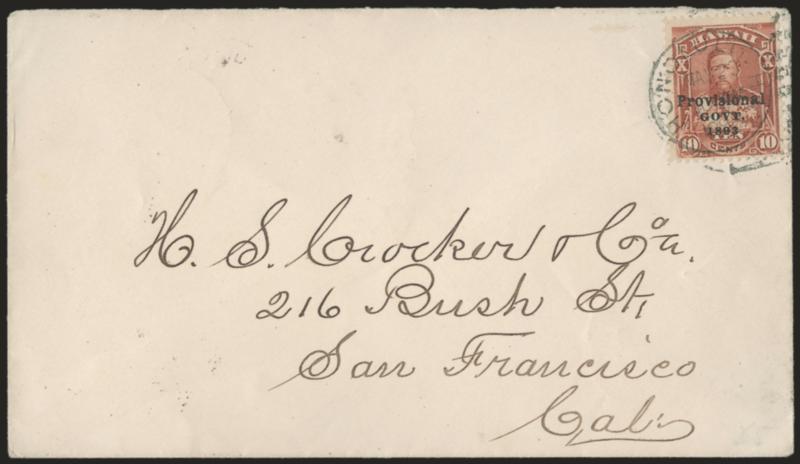 HAWAII
X X
Provisional
GOVT.
1893
10 CENTS 10
H. S. Crocker & Co.
216 Bush St.
San Francisco
Cal.